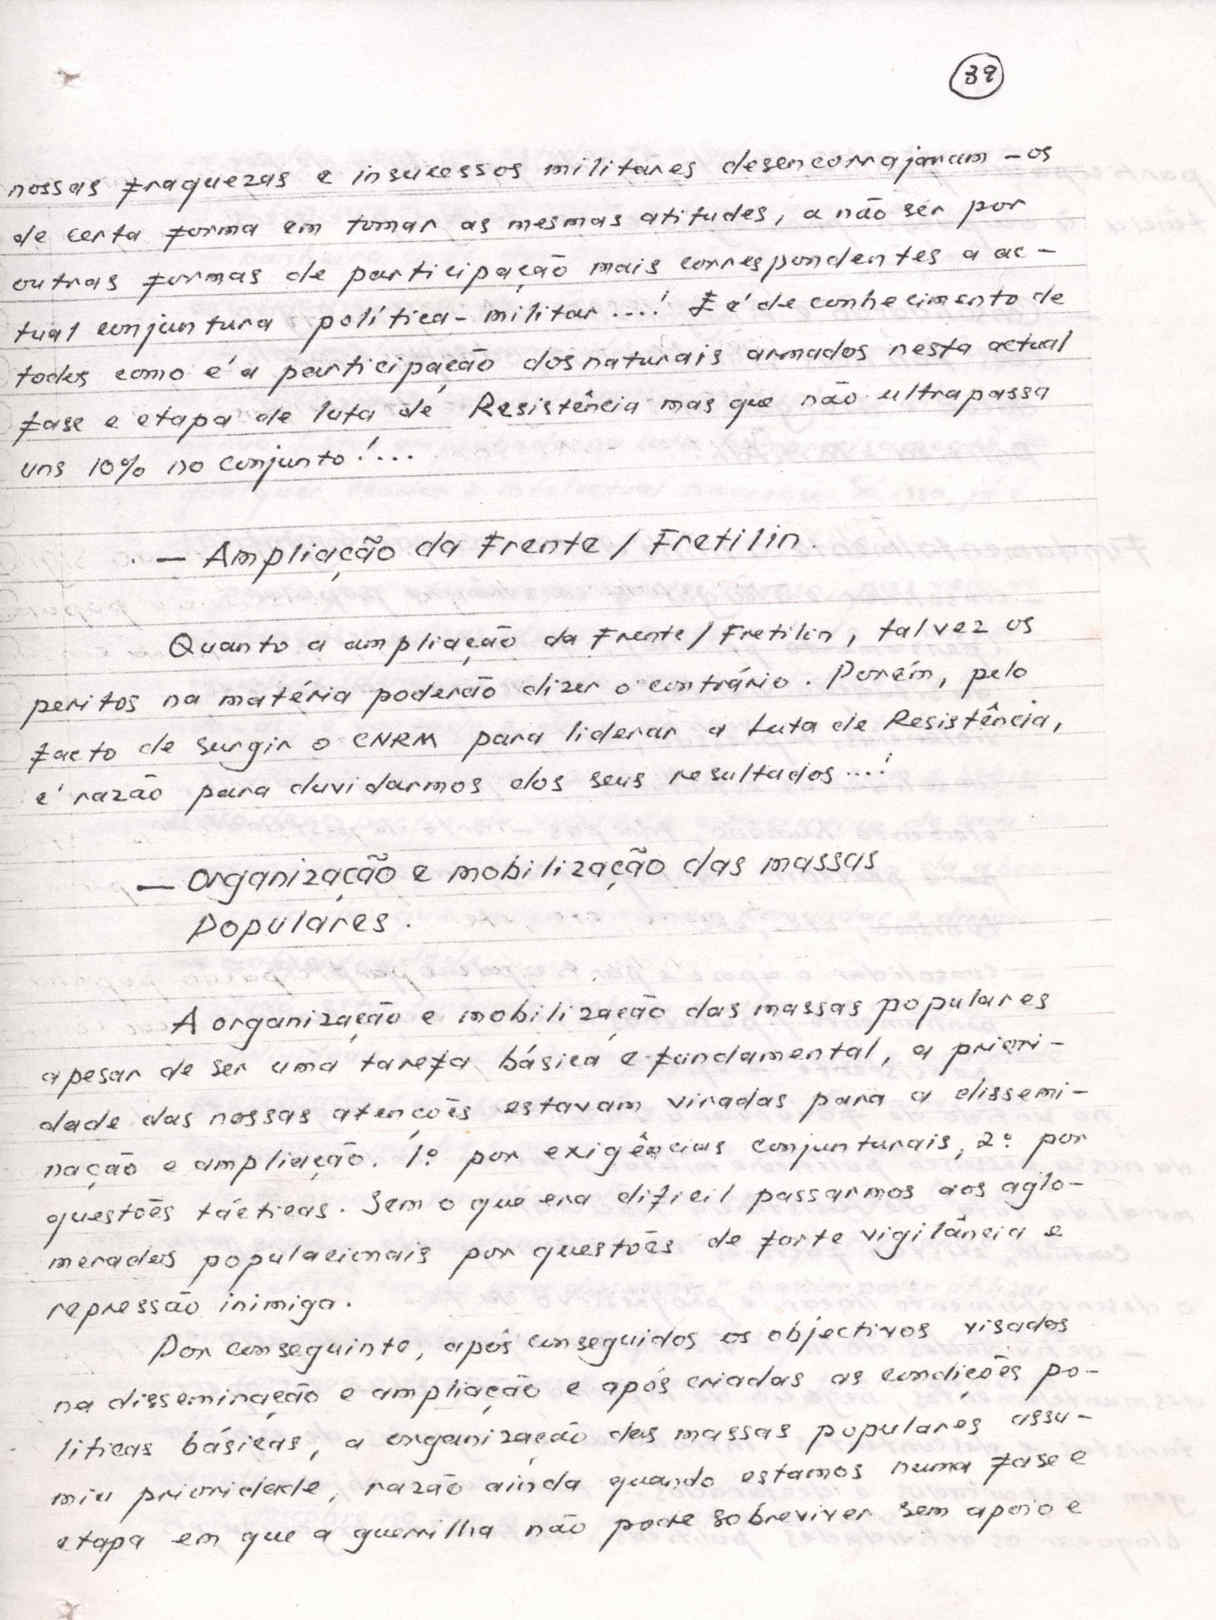 39
nossas fraquezas e insucessos militares desencorrajavam-os
de certa forma em tomar as mesmas atitudes, a não ser por
outras formas de participação mais correspondentes a ac-
tual conjuntura política-militar...! E é de conhecimento de
todos como é a participação dos naturais armados nesta actual
fase e etapa de luta de Resistência mas que não ultrapassa
uns 10% no conjunto!...
— Ampliação da Frente/Fretilin.
Quanto a ampliação da Frente/Fretilin, talvez os
peritos na matéria poderão dizer o contrário. Porém, pelo
facto de surgir o CNRM para liderar a Luta de Resistência,
é razão para duvidarmos dos seus resultados...!
— Organização e mobilização das massas
Populares.
A organização e mobilização das massas populares
apesar de ser uma tarefa básica e fundamental, a priori-
dade das nossas atenções estavam viradas para a dissemi-
nação e ampliação. 1º por exigências conjunturais, 2º por
questões tácticas. Sem o que era dificil passarmos aos aglo-
merados populacionais por questões de forte vigilância e
repressão inimiga.
Por conseguinte, após conseguidos os objectivos visados
na disseminação e ampliação e após criadas as condições po-
liticas básicas, a organização das massas populares assu-
miu prioridade, razão ainda quando estamos numa fase e
etapa em que a guerrilha não pode sobreviver sem apoio e